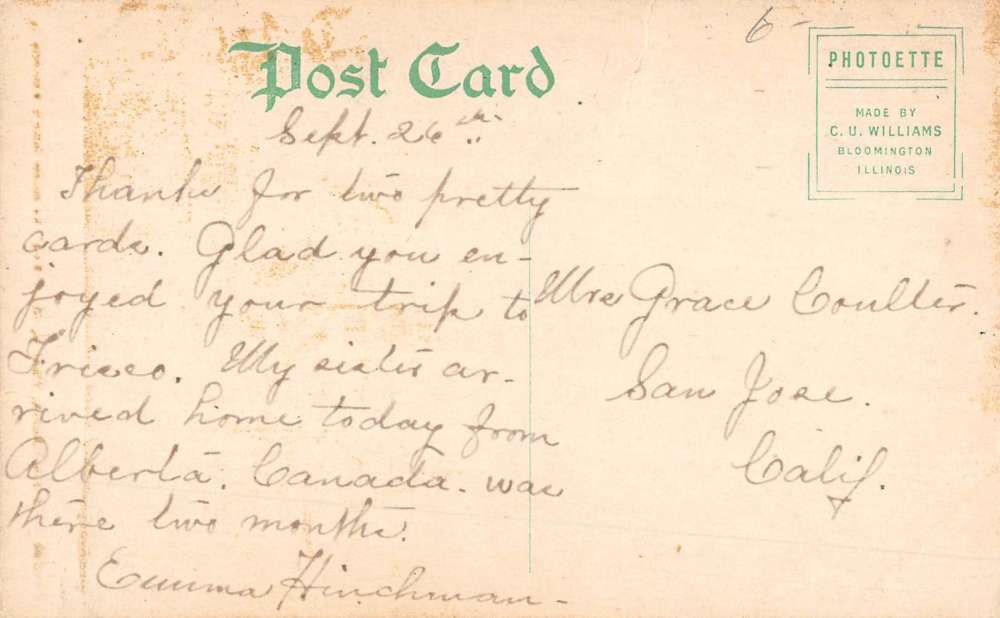 6-
Post Card
PHOTOETTE
MADE BY
C. U. WILLIAMS
BLOOMINGTON
ILLINOIS
Sept. 26th
Thanks for two pretty
cards. Glad you en-
joyed your trip to
Frisco. My sister ar-
rived home today from
Alberta. Canada. was
there two months.
Emma Hinchman-
Mrs Grace Coulter.
San Jose.
Calif.